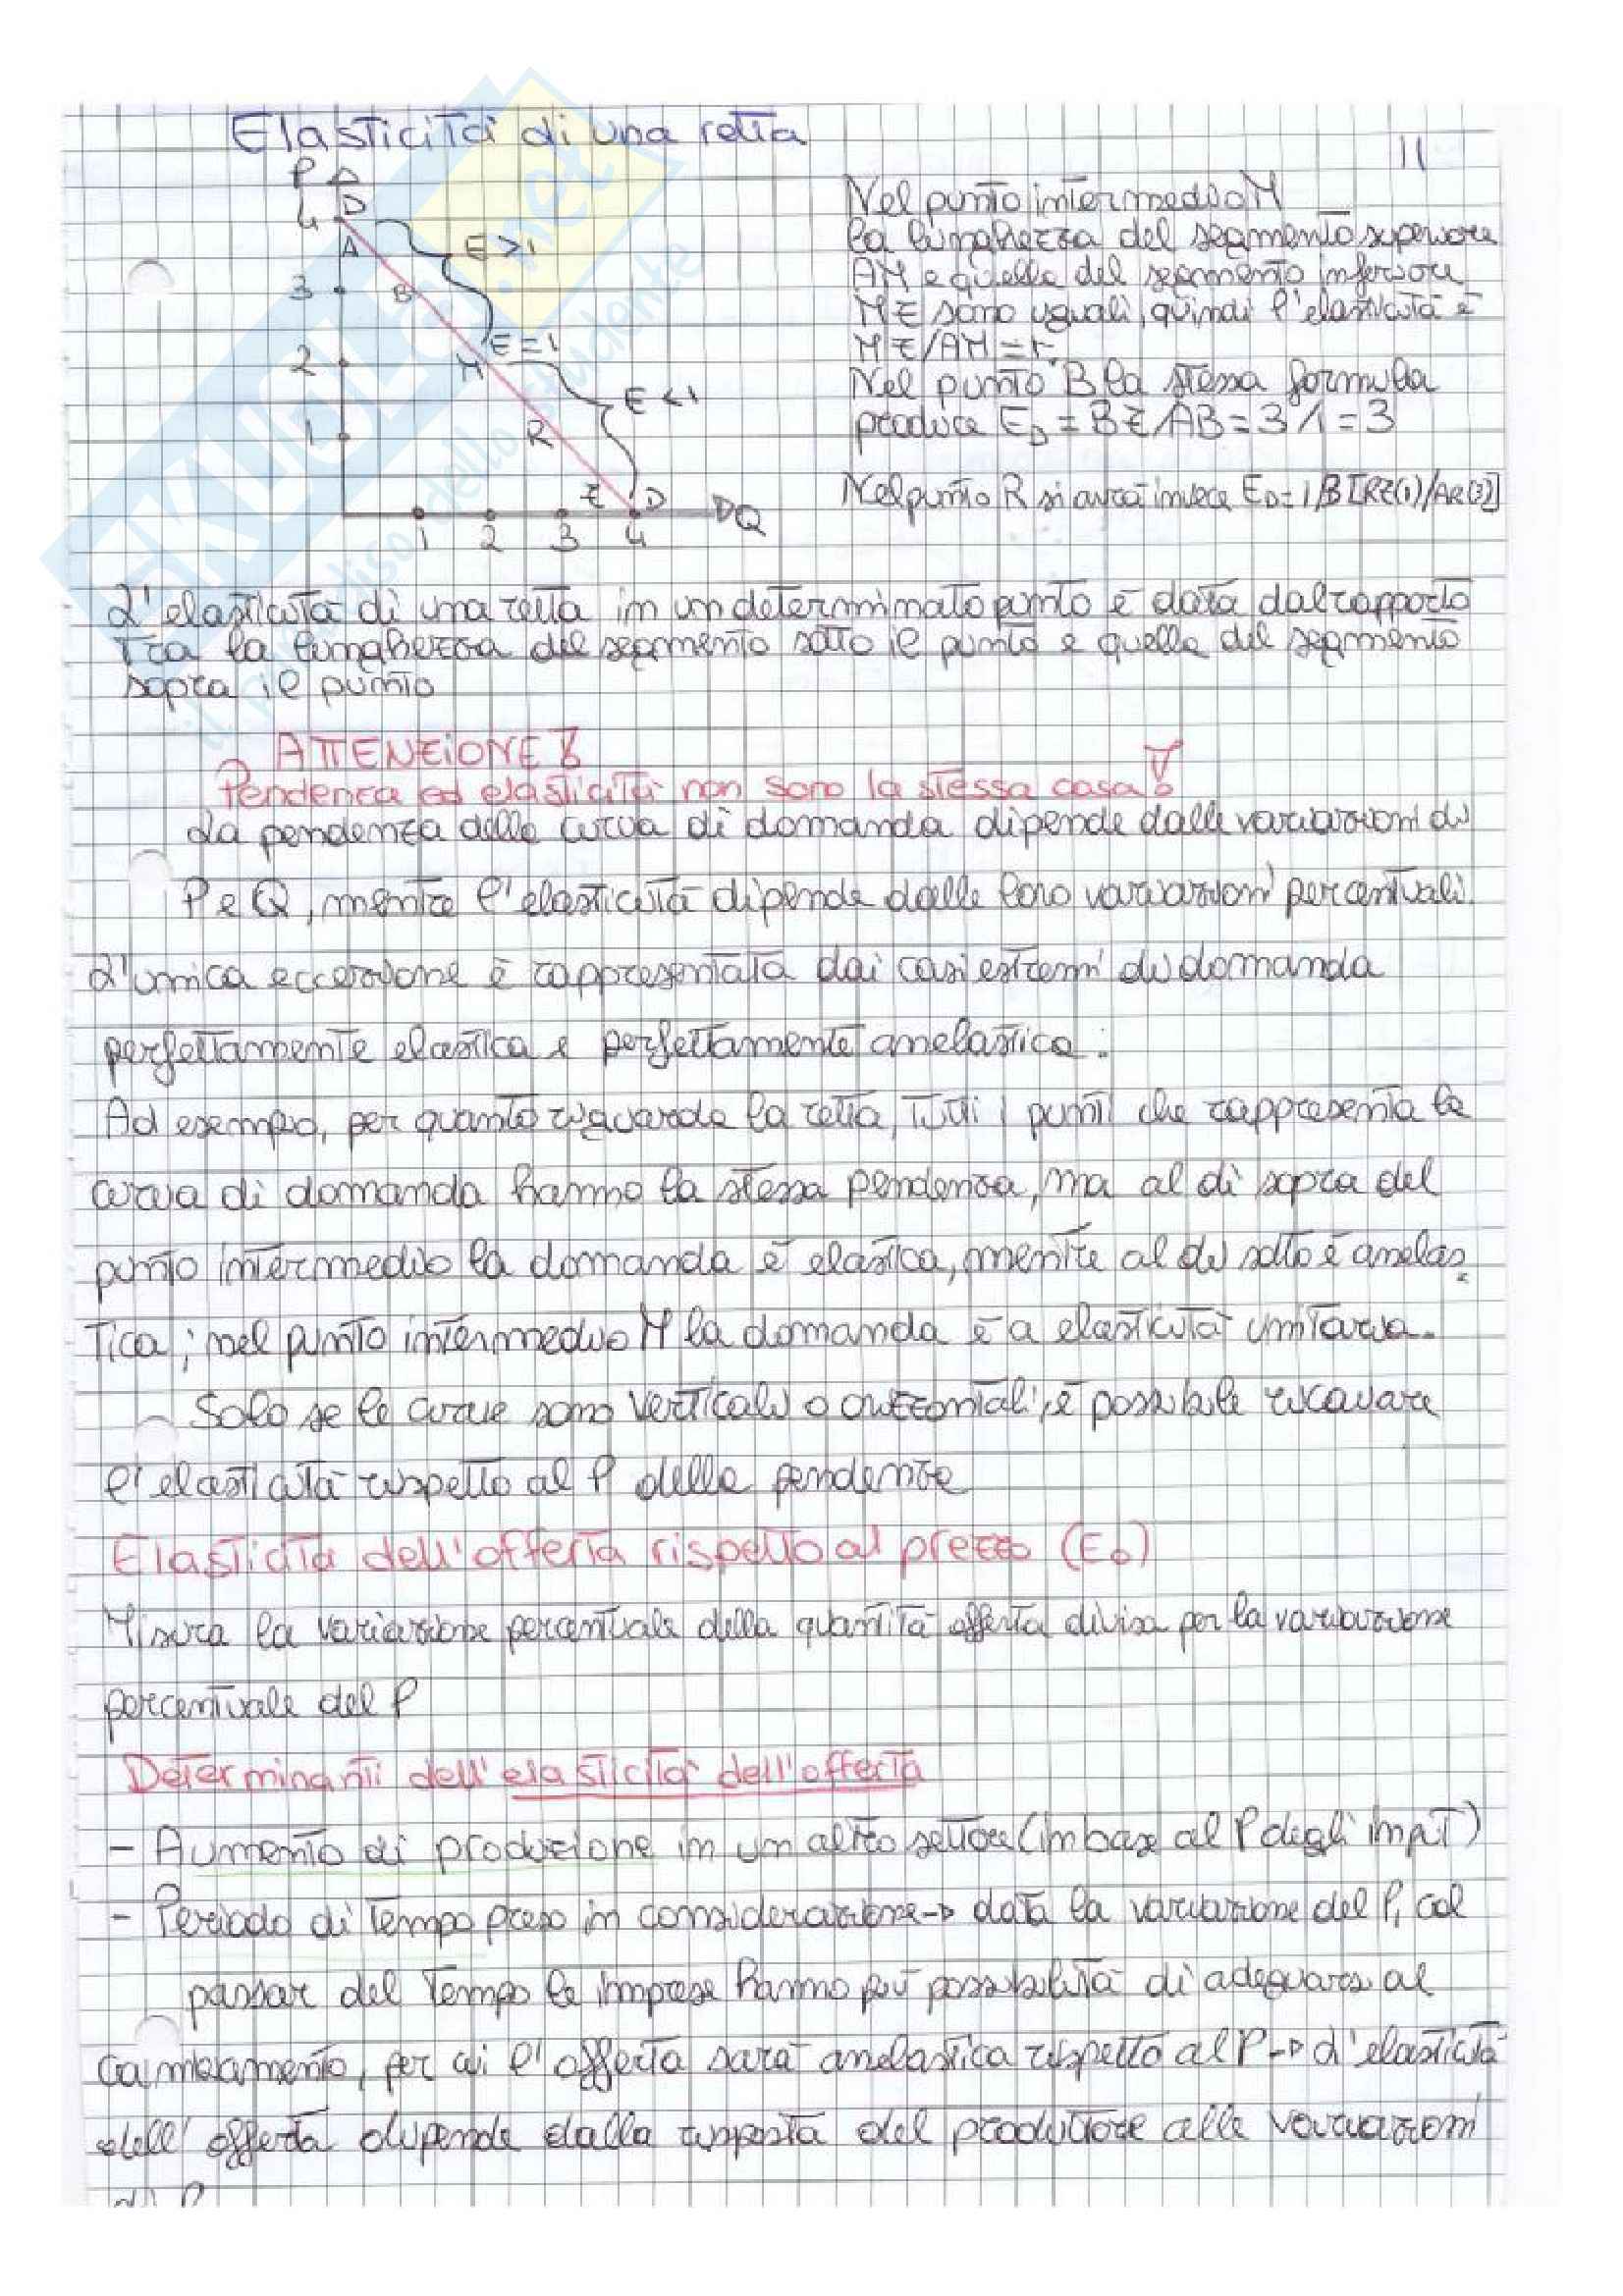 Elasticità di una retta
11
P
D
4
A
E>1
3
B
E=1
2
M
E<1
1
R
Z
D
Q
1 2 3 4
Nel punto intermedio M
la lunghezza del segmento superiore
AM e quella del segmento inferiore
MZ sono uguali, quindi l'elasticità è
MZ/AM=1.
Nel punto B la stessa formula
produce ED = BZ/AB = 3/1 = 3
Nel punto R si avrà invece ED=1/3 [RZ(1)/AR(3)]
L'elasticità di una retta in un determinato punto è data dal rapporto
tra la lunghezza del segmento sotto il punto e quella del segmento
sopra il punto
ATTENZIONE!
Pendenza ed elasticità non sono la stessa cosa!
La pendenza della curva di domanda dipende dalle variazioni di
P e Q, mentre l'elasticità dipende dalle loro variazioni percentuali.
L'unica eccezione è rappresentata dai casi estremi di domanda
perfettamente elastica e perfettamente anelastica.
Ad esempio, per quanto riguarda la retta, tutti i punti che rappresenta la
curva di domanda hanno la stessa pendenza, ma al di sopra del
punto intermedio la domanda è elastica, mentre al di sotto è anelas
tica; nel punto intermedio M la domanda è a elasticità unitaria.
Solo se le curve sono verticali o orizzontali, è possibile ricavare
l'elasticità rispetto al P della pendenza
Elasticità dell'offerta rispetto al prezzo (Eo)
Misura la variazione percentuale della quantità offerta divisa per la variazione
percentuale del P
Determinanti dell'elasticità dell'offerta
- Aumento di produzione in un altro settore (in base al P degli input)
- Periodo di tempo preso in considerazione → data la variazione del P, col
passar del tempo le imprese hanno più possibilità di adeguarsi al
cambiamento, per cui l'offerta sarà anelastica rispetto al P → L'elasticità
dell'offerta dipende dalla risposta del produttore alle variazioni
di P
SKUOLA.net
il paradiso dello studente